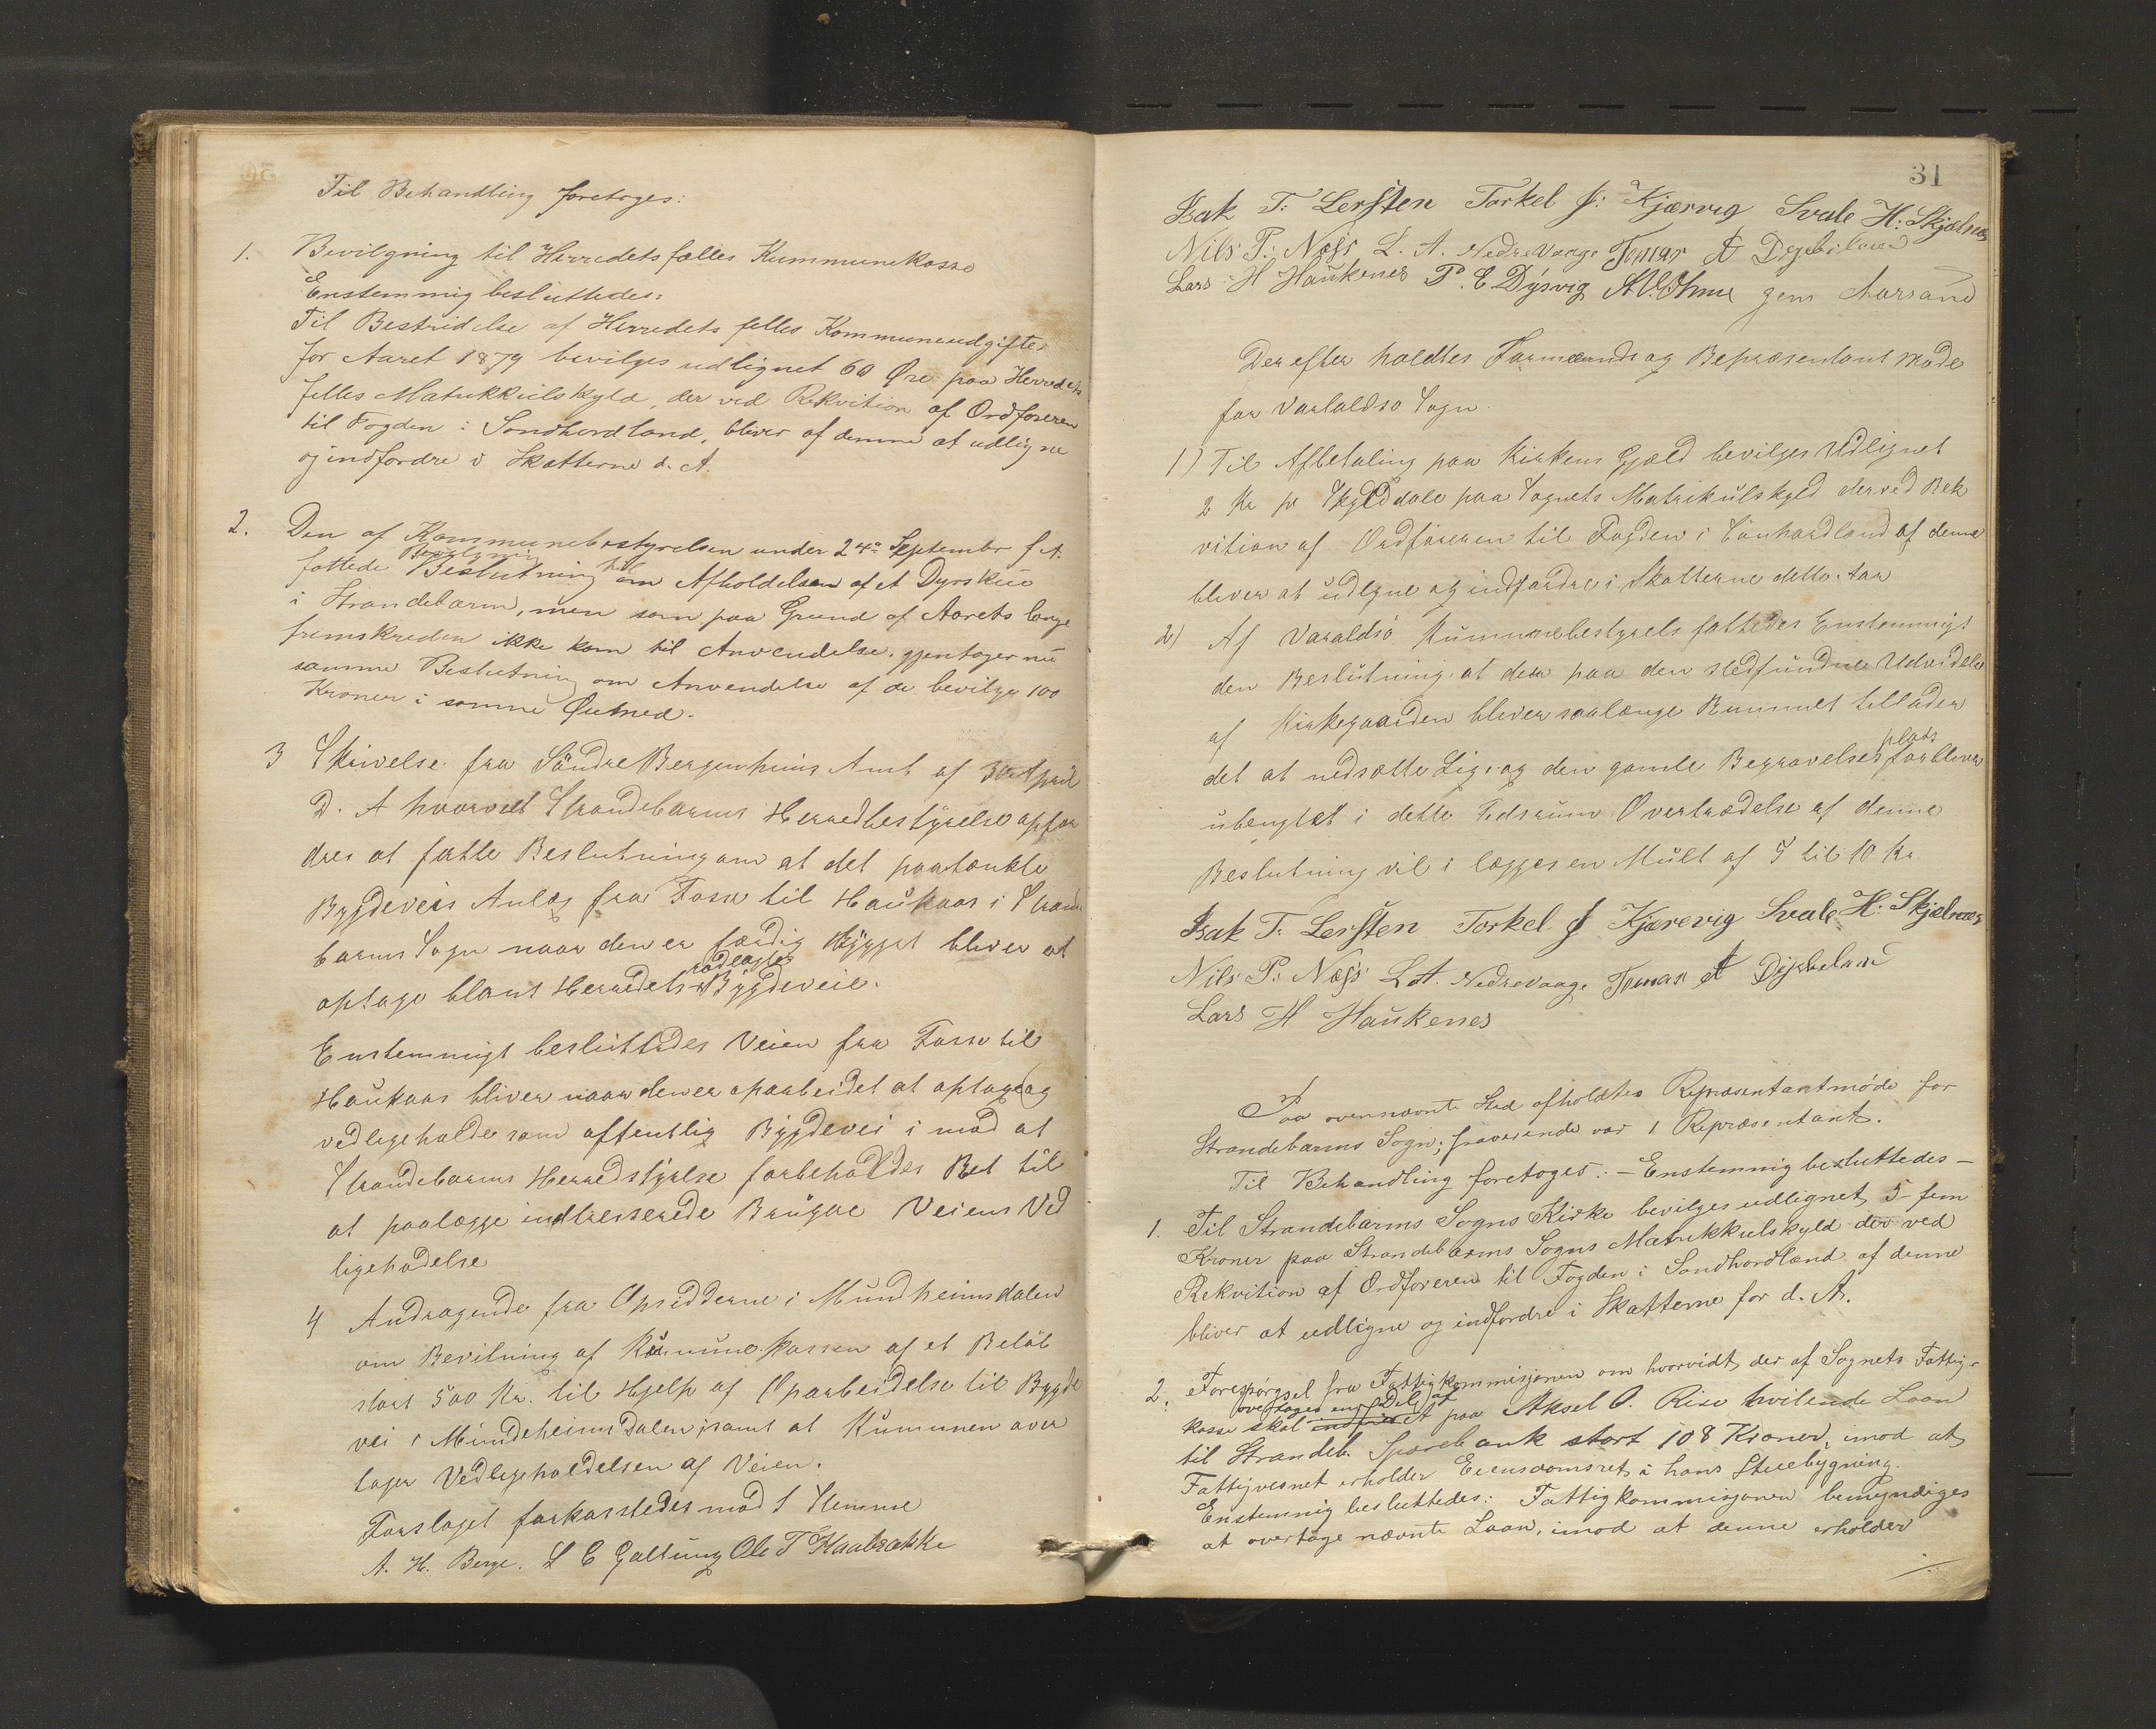 Til Behandling foretoges:
1. Bevilgning til Herredets fælles Kummunekasse
Enstemmig besluttedes:
Til Bestridelse af Herredets felles Kommuneudgifter
for Aaret 1879 bevilges udlignet 60 Øre paa Herredets
felles Matrikkulskyld, der ved Rekvition af Ordføreren
til Fogden i Søndhordland, bliver af denne at udligne
og indfordre i Skatterne d. A.
2. Den af Kommunebestyrelsen under 24de September f. A.
Bevilgning til
fattede Beslutning om Afholdelsen af et Dyrskue
i Strandebarm, men som paa Grund af Aarets lange
fremskreden ikke kom til Anvendelse, gjentager nu
samme Beslutning om Anvendelse af de bevilgede 100
Kroner i samme Øiemed.
3 Skrivelse fra Söndre Bergenhuus Amt af 30 April
D. A hvorved Strandebarms Herredbestyrelse opfor
dres at fatte Beslutning om at det paatænkte
Bygdeveis Anlæg fra Fosse til Haukaas i Strande
barms Sogn naar den er færdig bygget bliver at
rodlagte
optage blant Herredets Bygdeveie.
Enstemmigt besluttedes Veien fra Fosse til
Haukaas bliver naar den er oparbeidet at optage og
vedligeholde som offentlig Bygdevei i mod at
Strandebarms Herredstyrelse forbeholdes Ret til
at paalægge indtresserede Brugere Veiens Ved
ligehodelse
4 Andragende fra Opsidderne i Mundheimsdalen
om Bevilning af Kummune Kassen af et Beløb
stort 500 Kr. til Hjelp af Oparbeidelse til Bygde
vei i Mundeheimsdalen samt at Kumunen over
tager Vedligeholdelsen af Veien.
Forslaget forkastedes mod 1 Stemme
A. H. Berge. L C Galtung Ole T Haabrække
31
Isak T. Lersten Torkel J: Kjærvig Svale H: Skjælnes
Nils P: Næss L. A. Nedrevaage Tomas A Dysbeland
Lars H Haukenes P. E Dysvig Jens Aarsand
Der efter holdtes Formænds og Repræsentant Møde
for Varaldsø Sogn.
1) Til Afbetaling paa Kirkens Gjæld bevilges Udlignet
2 Kr pr Skylddale paa Sognets Matrikulskyld der ved Rek
vition af Ordføreren til Fogden i Sönhordland af denne
bliver at udligne og indfordre i Skatterne dette Aar
2) Af Varaldsö Kummunebestyrels fattedes Enstemmigt
den Beslutning at der paa den stedfundne Udvidelse
af Kirkegaarden bliver saalænge Rummet tillader
plads
det at nedsætte Lig, og den gamle Begravelses forbliver
ubenyttet i dette Tidsrum Overtrædelse af denne
Beslutning vil i lægges en Mult af 5 til 10 Kr.
Isak T. Lersten Torkel J Kjærevig Svale H: Skjælnæs
Nils P: Næss L A. Nedrevaage Tomas A Dysbeland
Lars H Haukenes
Paa overnævnte Sted afholdtes Repræsentantmøde for
Strandebarms Sogn; fraværende var 1 Repræsentant.
Til Behandling foretoges: – Enstemmig besluttedes –
1. Til Strandebarms Sogns Kirke bevilges udlignet 5 fem
Kroner paa Strandebarms Sogns Matrikkulskyld der ved
Rekvition af Ordføreren til Fogden i Søndhordland af denne
bliver at udligne og indfordre i Skatterne for d. A.
2. Forespørgsel fra Fattigkommisjonen om hvorvidt der af Sognets Fattig-
overtages en Del af
kasse skal indfries et paa Aksel O. Rise hvilende Laan
til Strandeb. Sparebank stort 108 Kroner, imod at
Fattigvesnet erholder Eiensdomsret i hans Stuebygning.
Enstemmig besluttedes: Fattigkommisjonen bemyndiges
at overtage nævnte Laan, imod at denne erholder